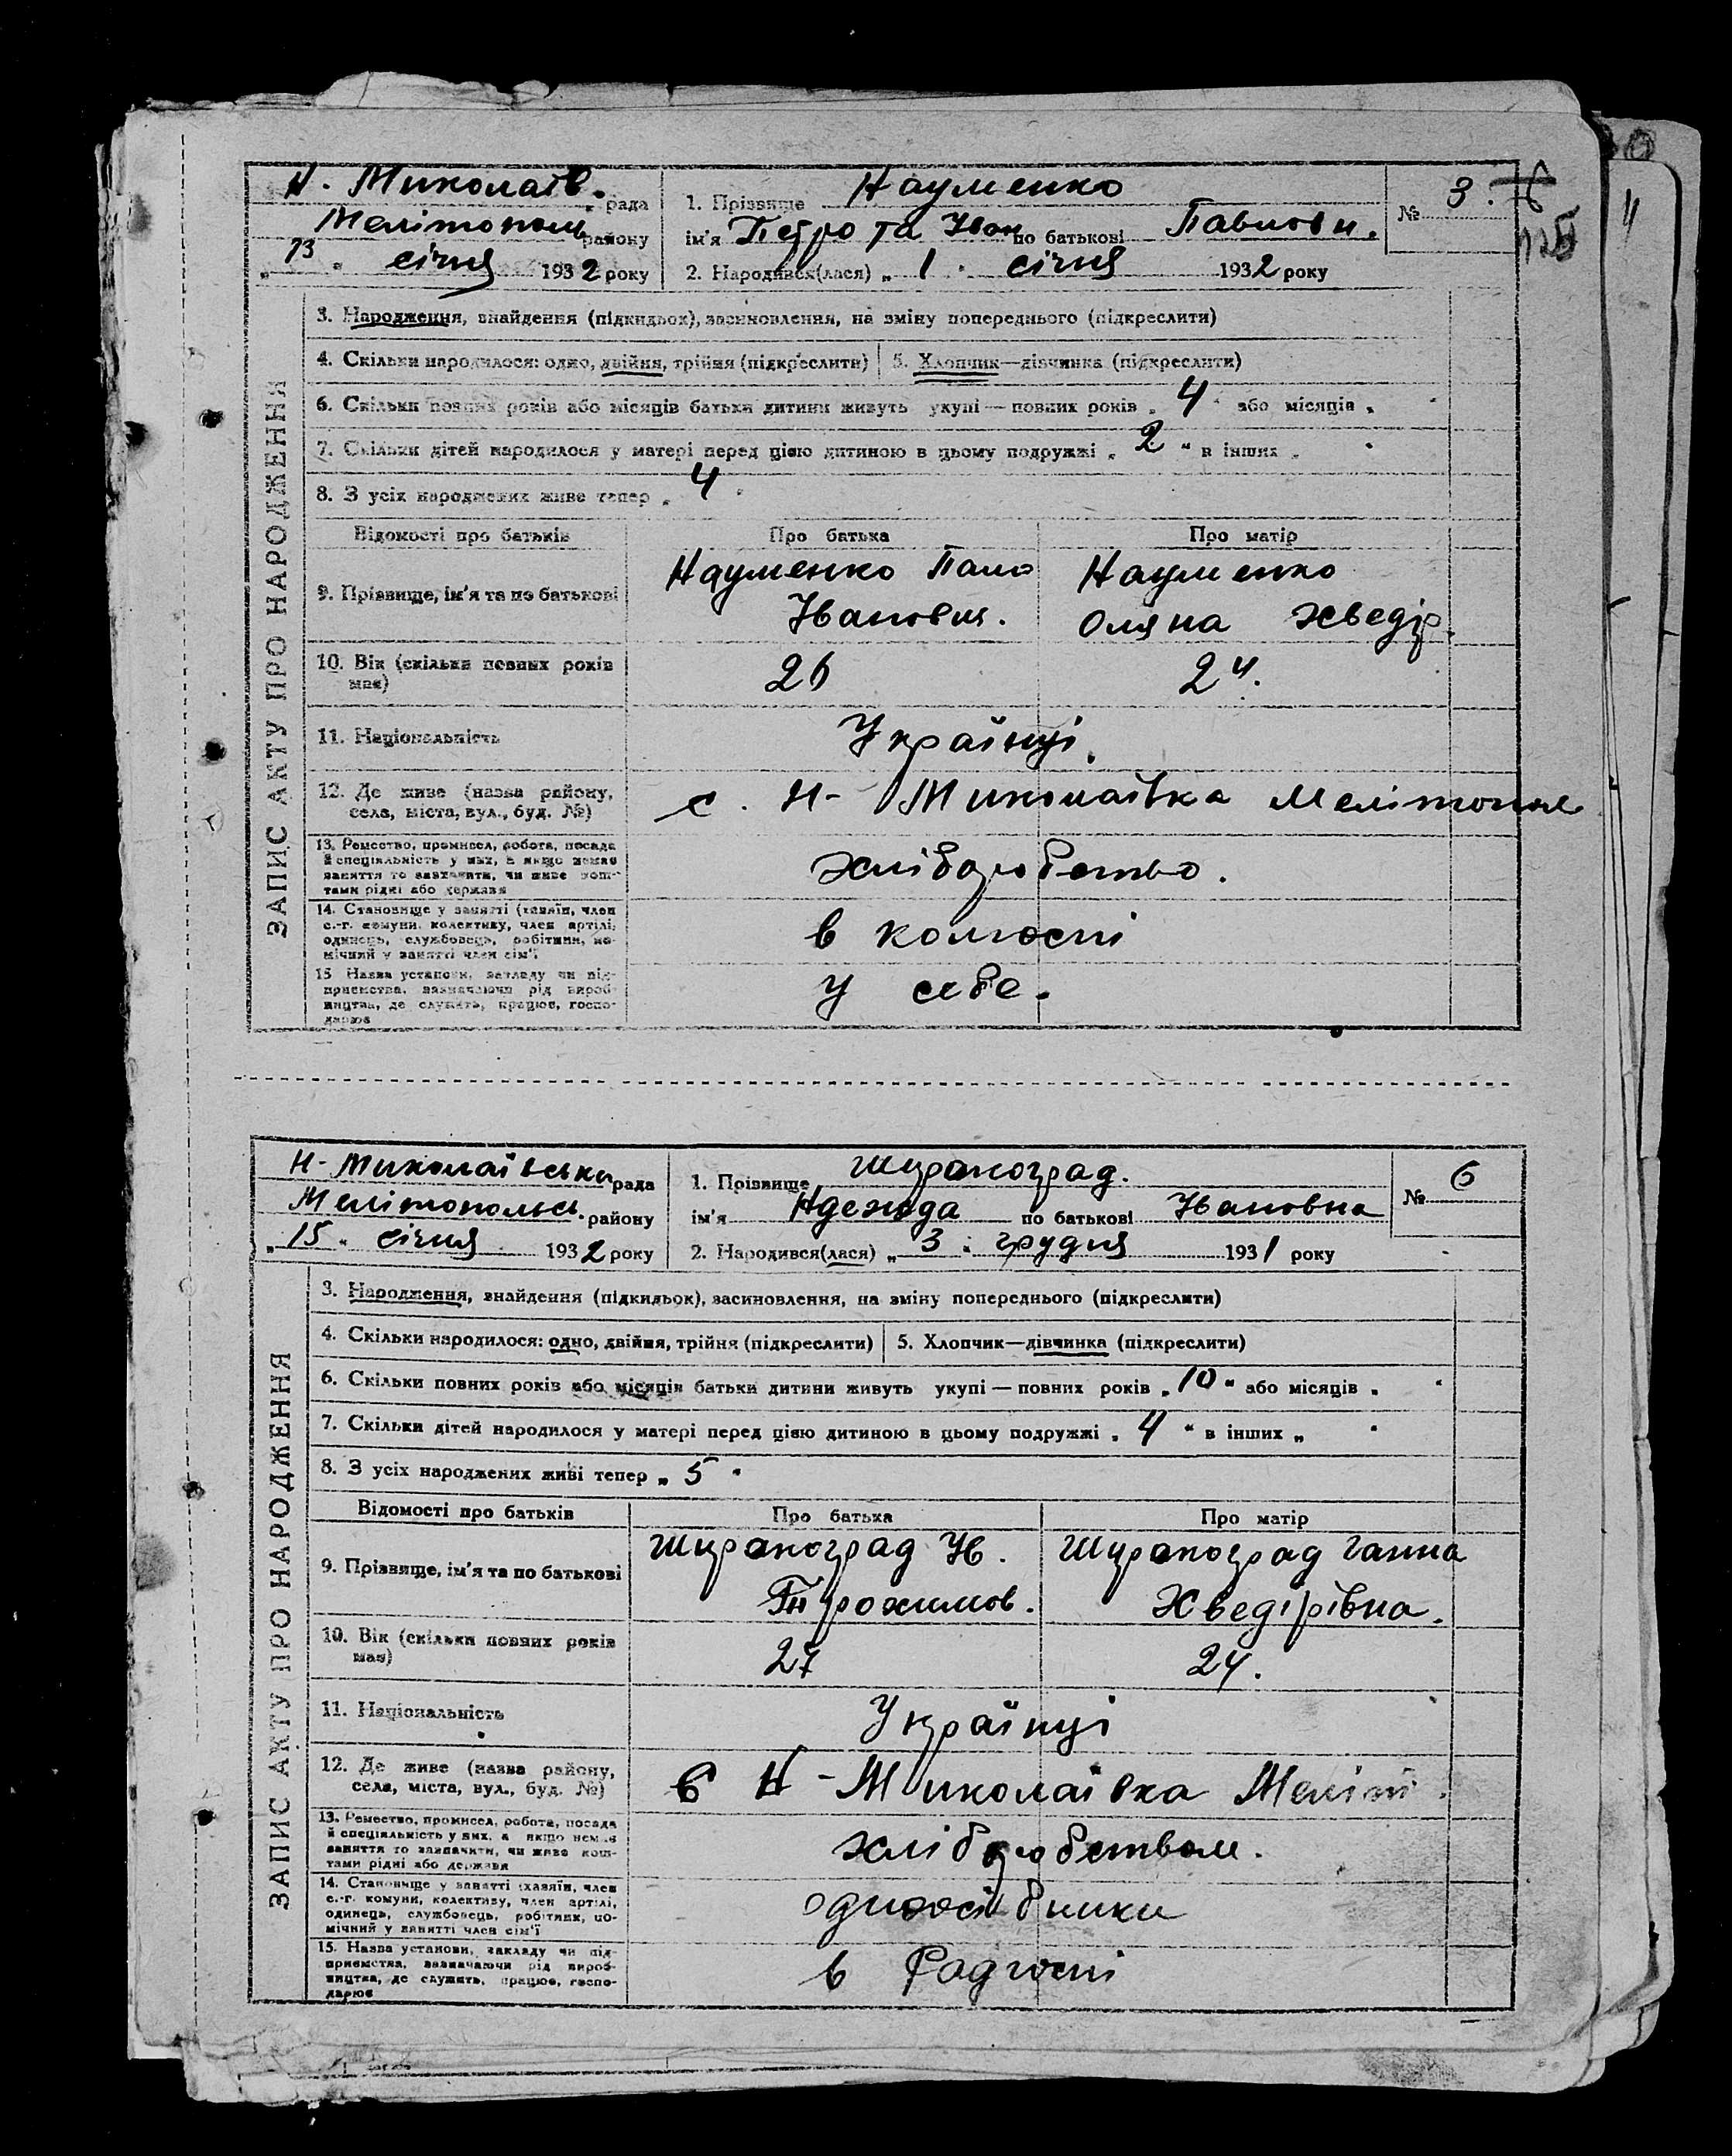 Н. Миколаїв. рада
Мелітополь району
"13" січня 1932 року
1. Прізвище Науменко
ім'я Петро та Іван по батькові Павлови.
2. Народився(лася) "1" січня 1932 року
№ 3.
11
ЗАПИС АКТУ ПРО НАРОДЖЕННЯ
3. Народження, знайдення (підкидьок), засиновлення, на зміну попереднього (підкреслити)
4. Скільки народилося: одно, двійня, трійня (підкреслити) 5. Хлопчик—дівчинка (підкреслити)
6. Скільки повних років або місяців батьки дитини живуть укупі — повних років „ 4 " або місяців „ "
7. Скільки дітей народилося у матері перед цією дитиною в цьому подружжі „ 2 " в інших „ "
8. З усіх народжених живе тепер „ 4 "
Відомості про батьків Про батька Про матір
9. Прізвище, ім'я та по батькові
Науменко Павло
Іванович.
Науменко
Оляна Хведір.
10. Вік (скільки повних років
має) 26 24.
11. Національність Українці.
12. Де живе (назва району,
села, міста, вул., буд. №) с. Н- Миколаївка Мелітопол
13. Ремество, промисел, робота, посада
й спеціальність у них, а якщо немає
заняття то зазначити, чи живе кош-
тами рідні або держави
хліборобство.
14. Становище у занятті (хазяїн, член
с.-г. комуни, колективу, член артілі,
одинець, службовець, робітник, по-
мічний у занятті член сім'ї
в колгоспі
15 Назва установи, закладу чи під-
приємства, зазначаючи рід вироб-
ництва, де служить, працює, госпо-
дарює
у себе.
Н- Миколаївська рада
Мелітопольс. району
"15" січня 1932 року
1. Прізвище Шураноград.
ім'я Надежда по батькові Івановна
2. Народився(лася) „3" грудня 1931 року
№ 6
ЗАПИС АКТУ ПРО НАРОДЖЕННЯ
3. Народження, знайдення (підкидьок), засиновлення, на зміну попереднього (підкреслити)
4. Скільки народилося: одно, двійня, трійня (підкреслити) 5. Хлопчик—дівчинка (підкреслити)
6. Скільки повних років або місяців батьки дитини живуть укупі — повних років „ 10 " або місяців „ "
7. Скільки дітей народилося у матері перед цією дитиною в цьому подружжі „ 4 " в інших „ "
8. З усіх народжених живі тепер „ 5 "
Відомості про батьків Про батька Про матір
9. Прізвище, ім'я та по батькові
Шураноград Ів.
Трохимов.
Шураноград Ганна
Хведірівна.
10. Вік (скільки повних років
має) 27 24.
11. Національність Українці
12. Де живе (назва району,
села, міста, вул., буд. №) с Н - Миколаївка Меліт.
13. Ремество, промисел, робота, посада
й спеціальність у них, а якщо немає
заняття то зазначити, чи живе кош-
тами рідні або держави
хліборобством.
14. Становище у занятті (хазяїн, член
с.-г. комуни, колективу, член артілі,
одинець, службовець, робітник, по-
мічний у занятті член сім'ї
одноосібники
15. Назва установи, закладу чи під-
приємства, зазначаючи рід вироб-
ництва, де служить, працює, госпо-
дарює
в Радгоспі